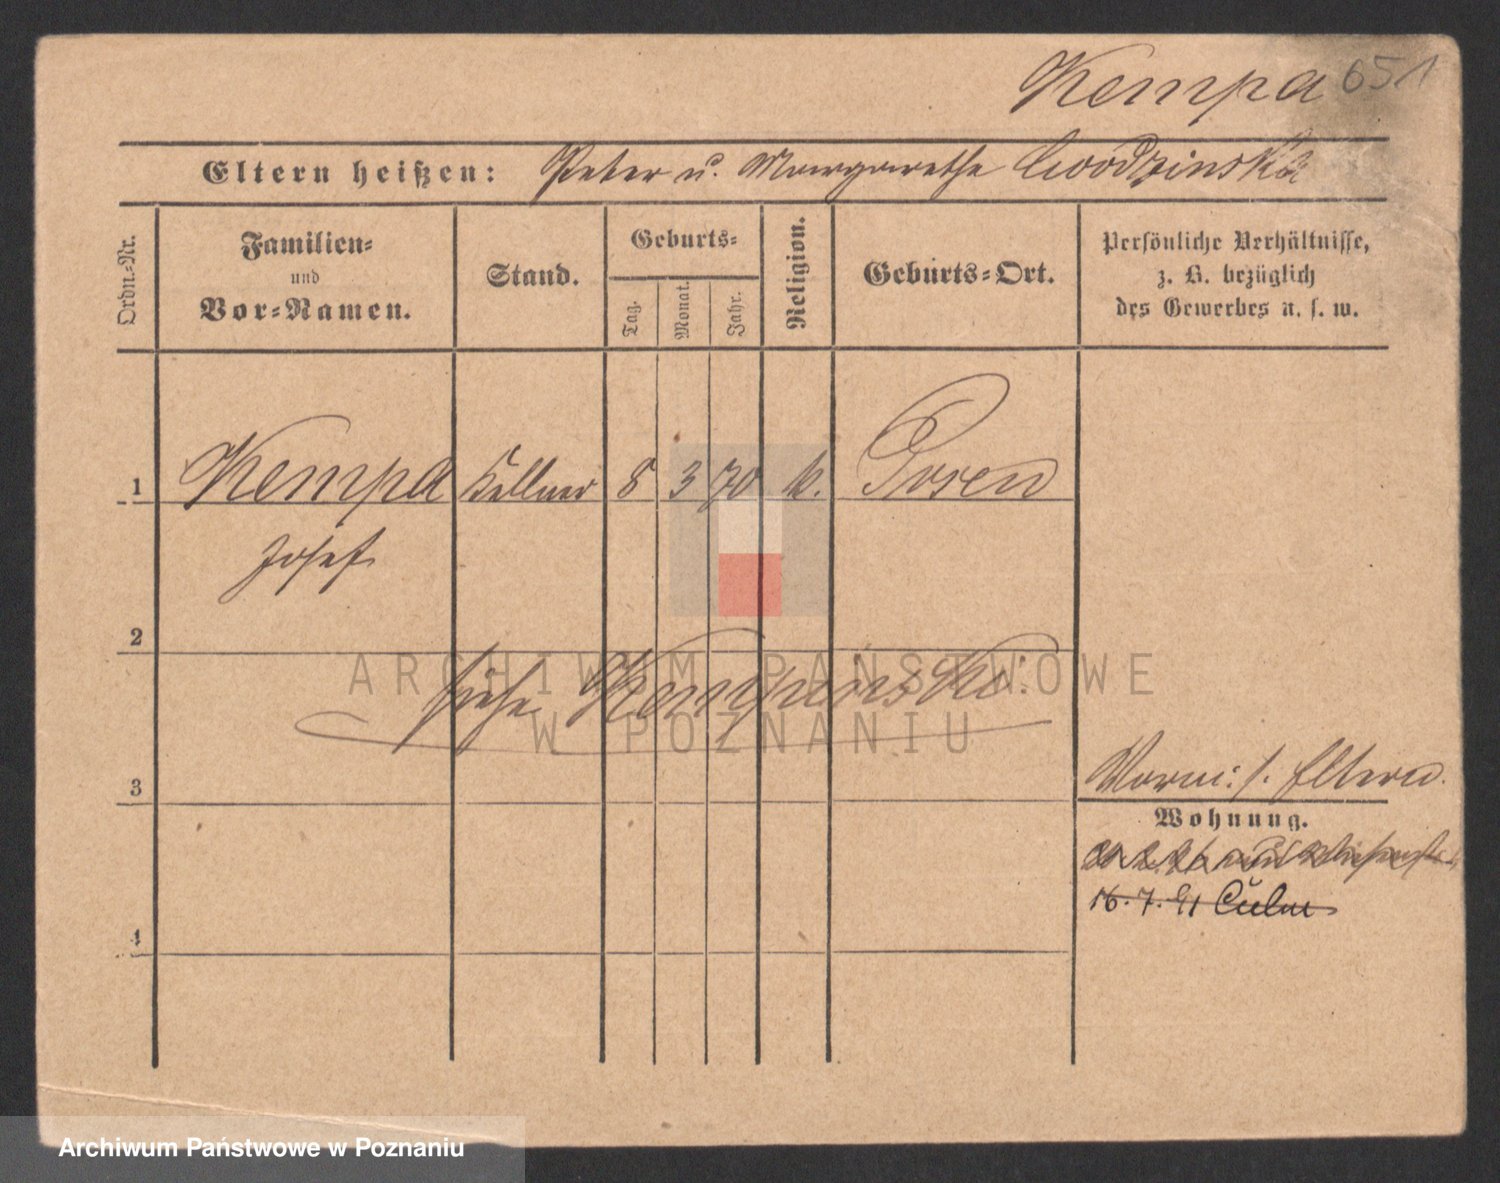 Kempa 651
Eltern heißen: Peter u. Margarethe
Ordn.-Nr.
Familien-
und
Vor-Namen.
Stand.
Geburts-
Tag.
Monat.
Jahr.
Religion.
Geburts-Ort.
Persönliche Verhältnisse,
z. B. bezüglich
des Gewerbes u. s. w.
1 Kempa Kellner 8 3 70 k. Posen
Josef
2
ARCHIWUM PAŃSTWOWE
W POZNANIU
Kempinski
3
Eltern.
Wohnung.
16. 7. 91 Culm
4
Archiwum Państwowe w Poznaniu